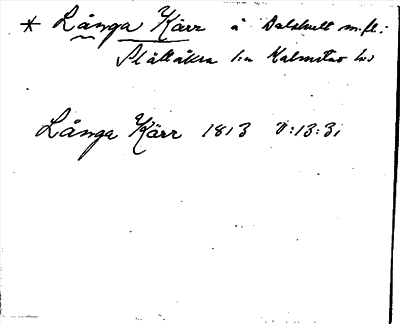 * Långa Kärr å Dalshult m.fl.
Slättåkra sn Halmstad hd
Långa Kärr 1813 V:13:31